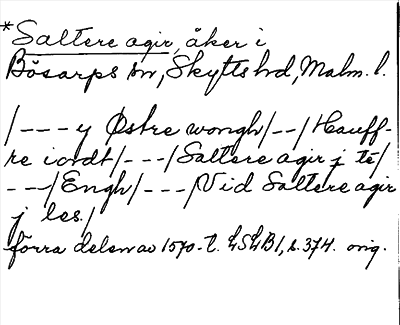 *Saltere agir, åker i
Bösarps sn, Skytts hd, Malm. l.
/---y Østre wongh/--/Hauff-
re iordt/---/Saltere agir j tē/
--/Engh/---/Vid Saltere agir
j les./
förra delen av 1570-t. LSLB1, s. 374. orig.